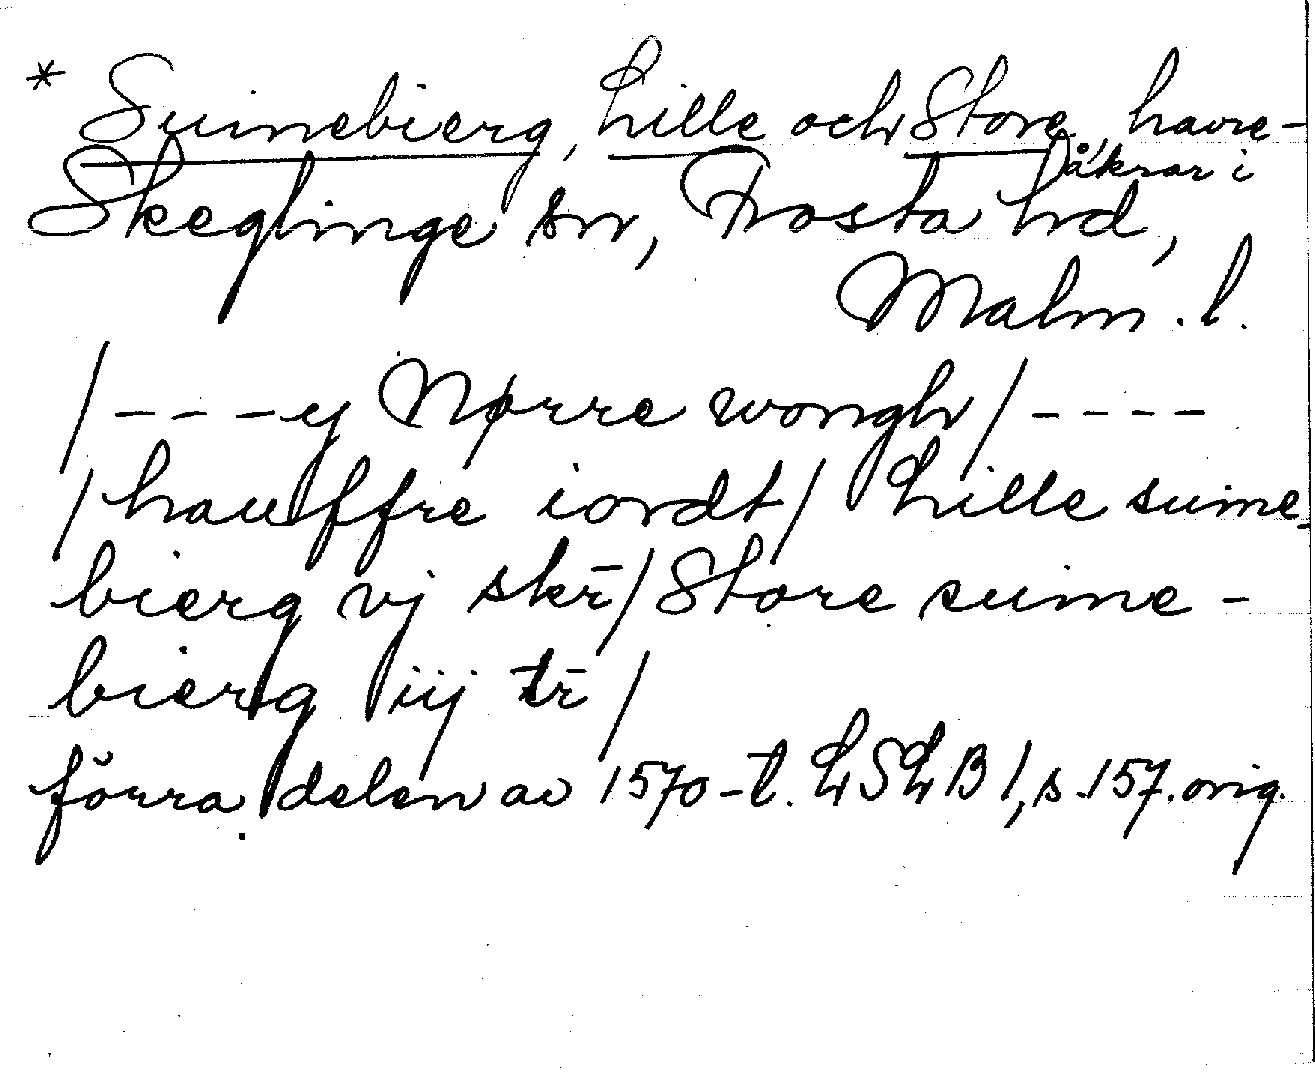 * Sumebierg, Lille och Store, havre-
åkrar i
Skeglinge sn, Frosta hd,
Malm. l.
/ - - - y Nørre wongh / - - - -
/ hauffre iordt / Lille sume-
bierg vj skr̄ / Store sume-
bierg iij tr̄ /
förra delen av 1570-t. LSLB 1, s. 157. orig.